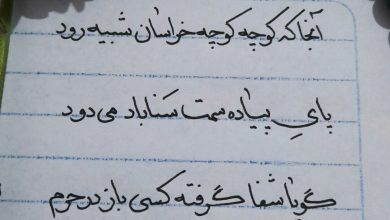 آنجا که کوچه کوچه خراسان شبیه رود
پایِ پیاده سمت سَناباد می دود
گویا شفا گرفته کسی باز در حرم